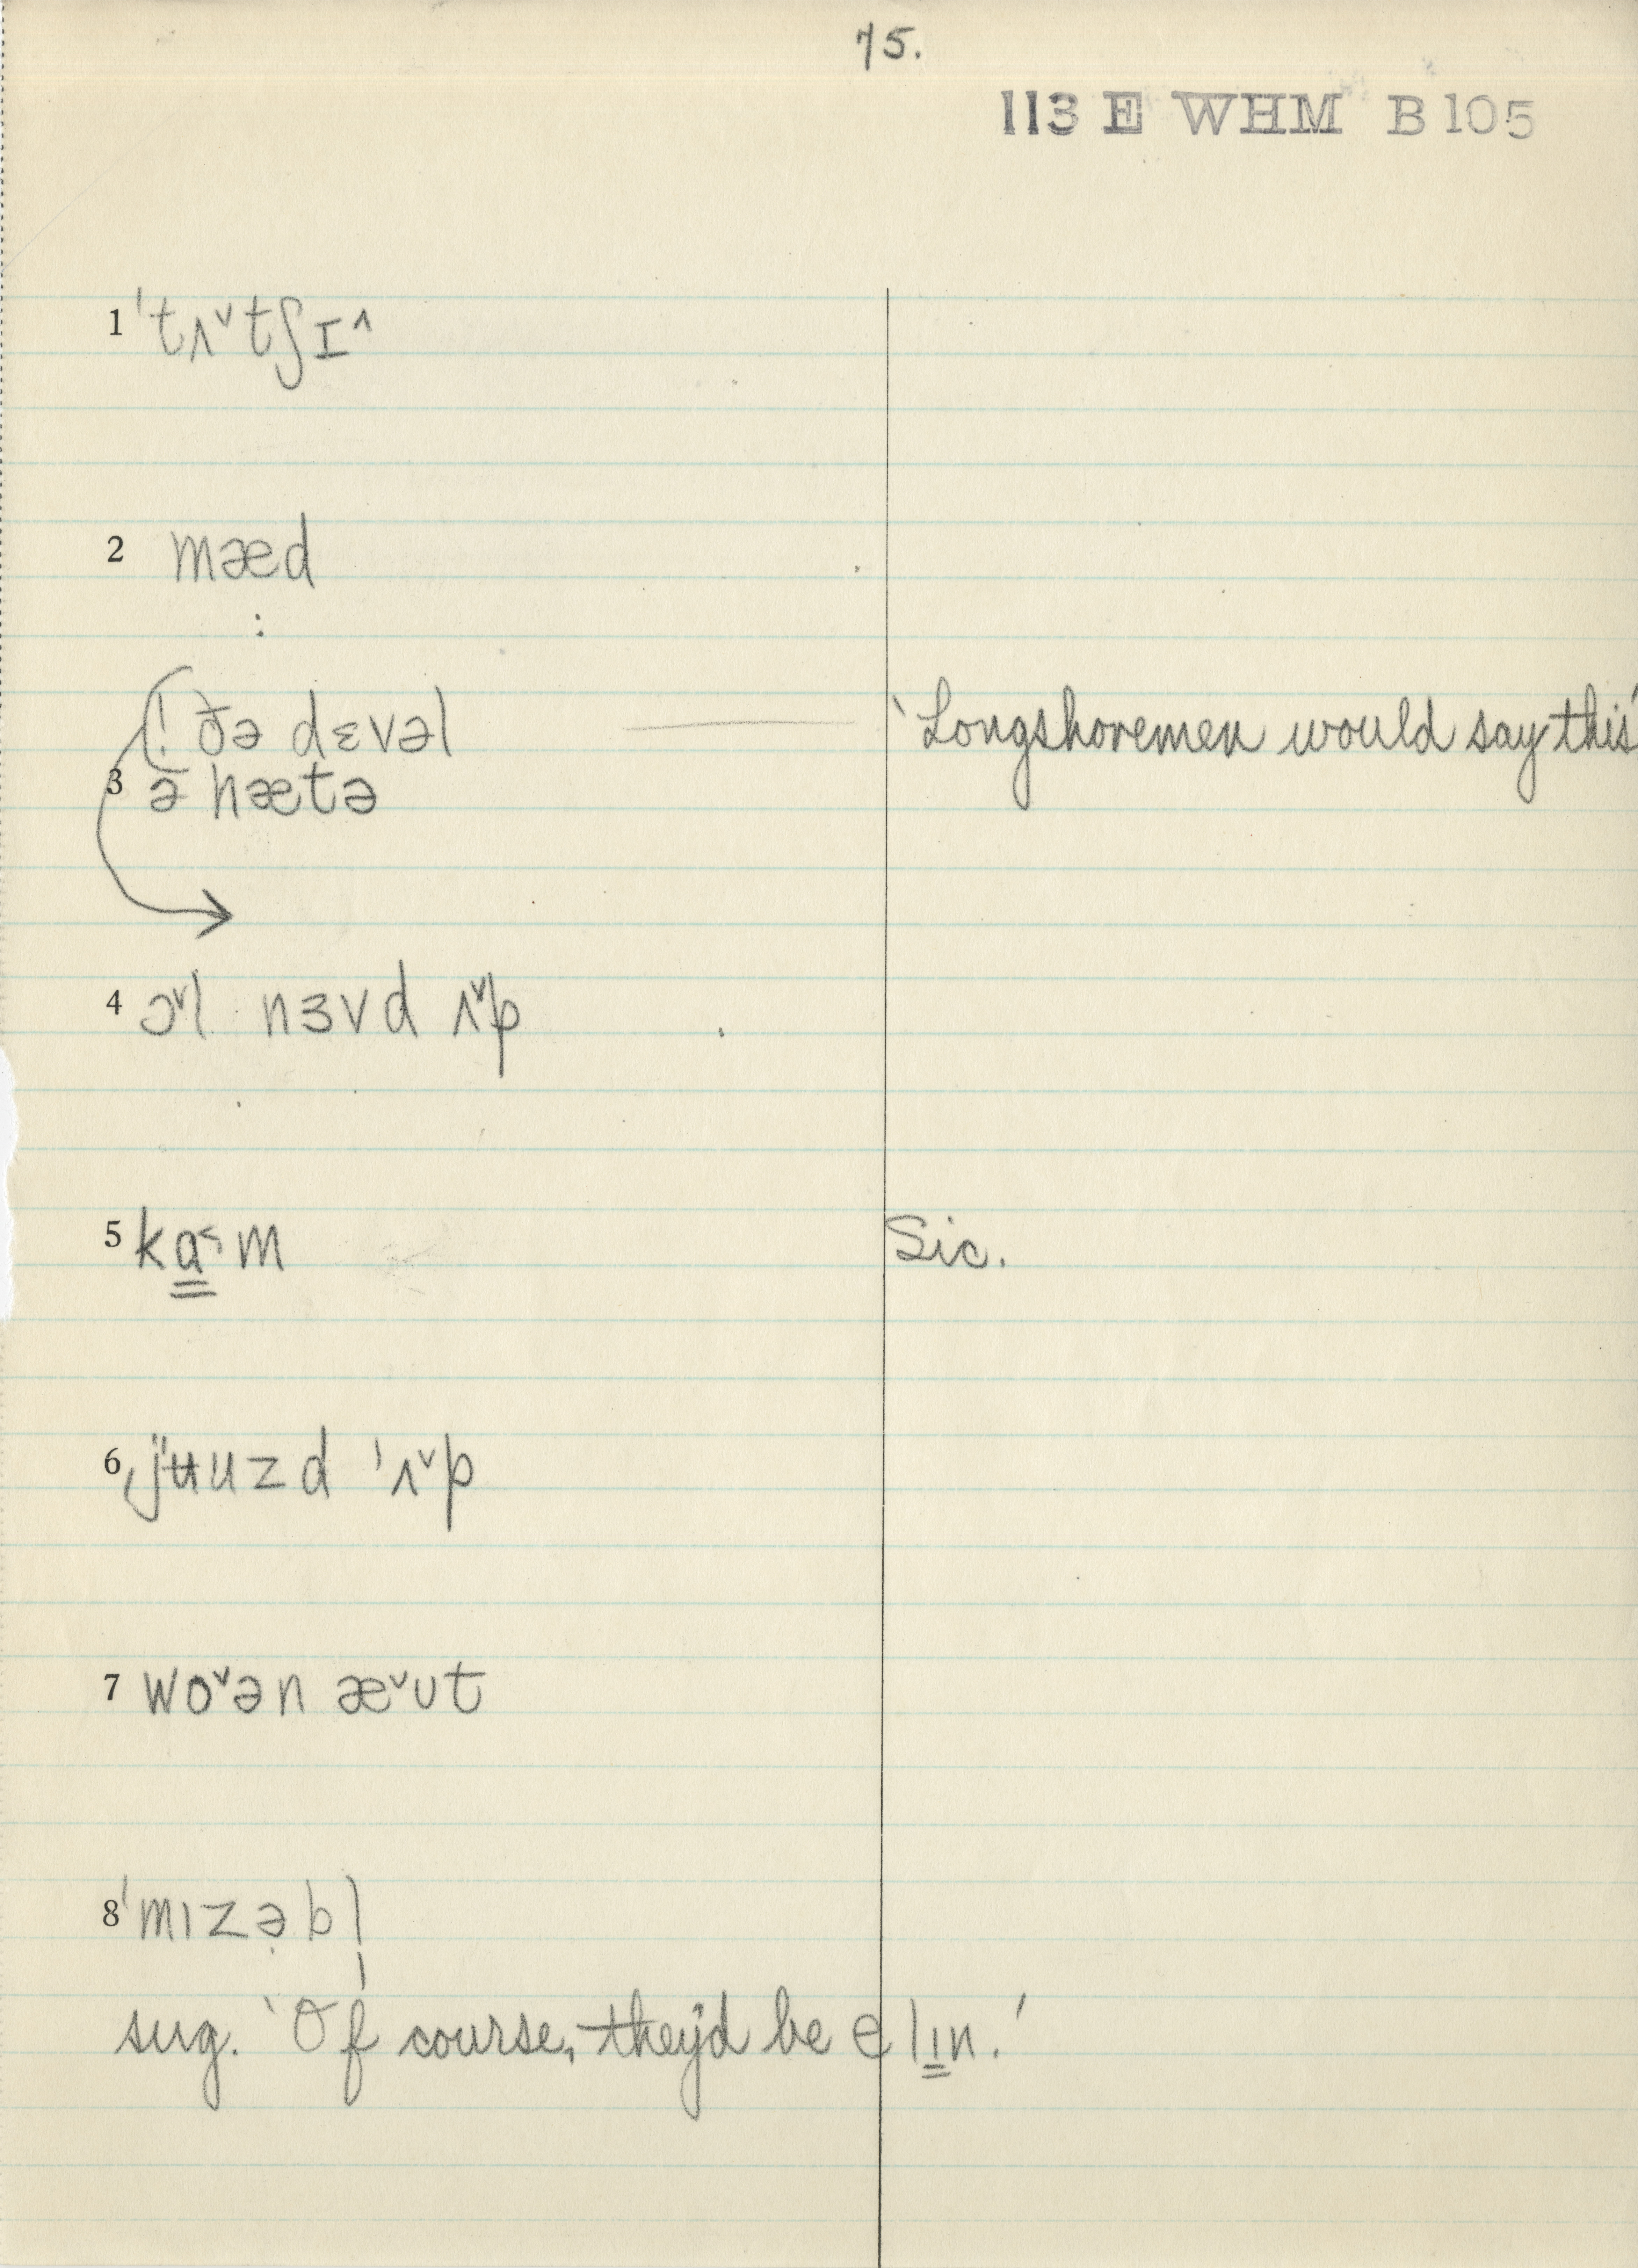 75.
113 E WHM B 105
1 ˈtʌ˅tʃɪ˄
2 mæd
:
(! ðə dɛvəl ‘Longshoremen would say this’
3 ə hætə
4 ɔ˅l nɜvd ʌ˅p
5 ka̳˂m Sic.
6 jʉuzd ˈʌ˅p
7 wo˅ən æ˅ut
8 ˈmɪzə̣bl̩
sug. ‘Of course, they'd be e lɪ̳n.’